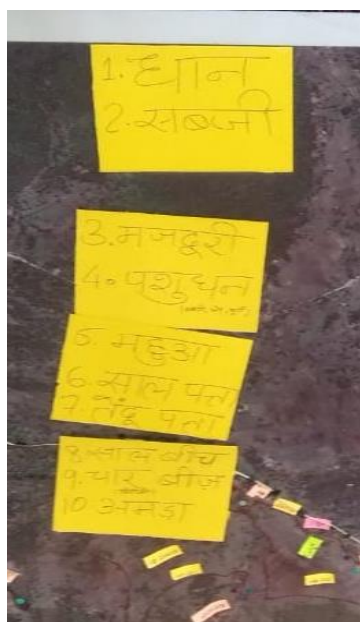 1. धान
2. सब्जी
3. मजदूरी
4. पशुधन
5. महुआ
6. साल पत्ता
7. तेंदू पत्ता
8. साल बीज
9. चार बीज
10